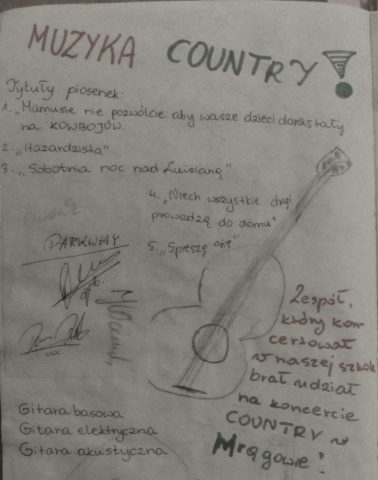 MUZYKA COUNTRY!
Tytuły piosenek:
1. „Mamusie nie pozwólcie aby wasze dzieci dorastały
na KOWBOJÓW.
2. „Hazardzista"
3. „Sobotnia noc nad Luisianą"
4. „Niech wszystkie drogi
prowadzą do domu"
5. „Spieszę się"
PARKWAY
Zespół,
który kon
certował
w naszej szkole
brał udział
na koncercie
COUNTRY w
Mrągowie!
Gitara basowa
Gitara elektryczna
Gitara akustyczna